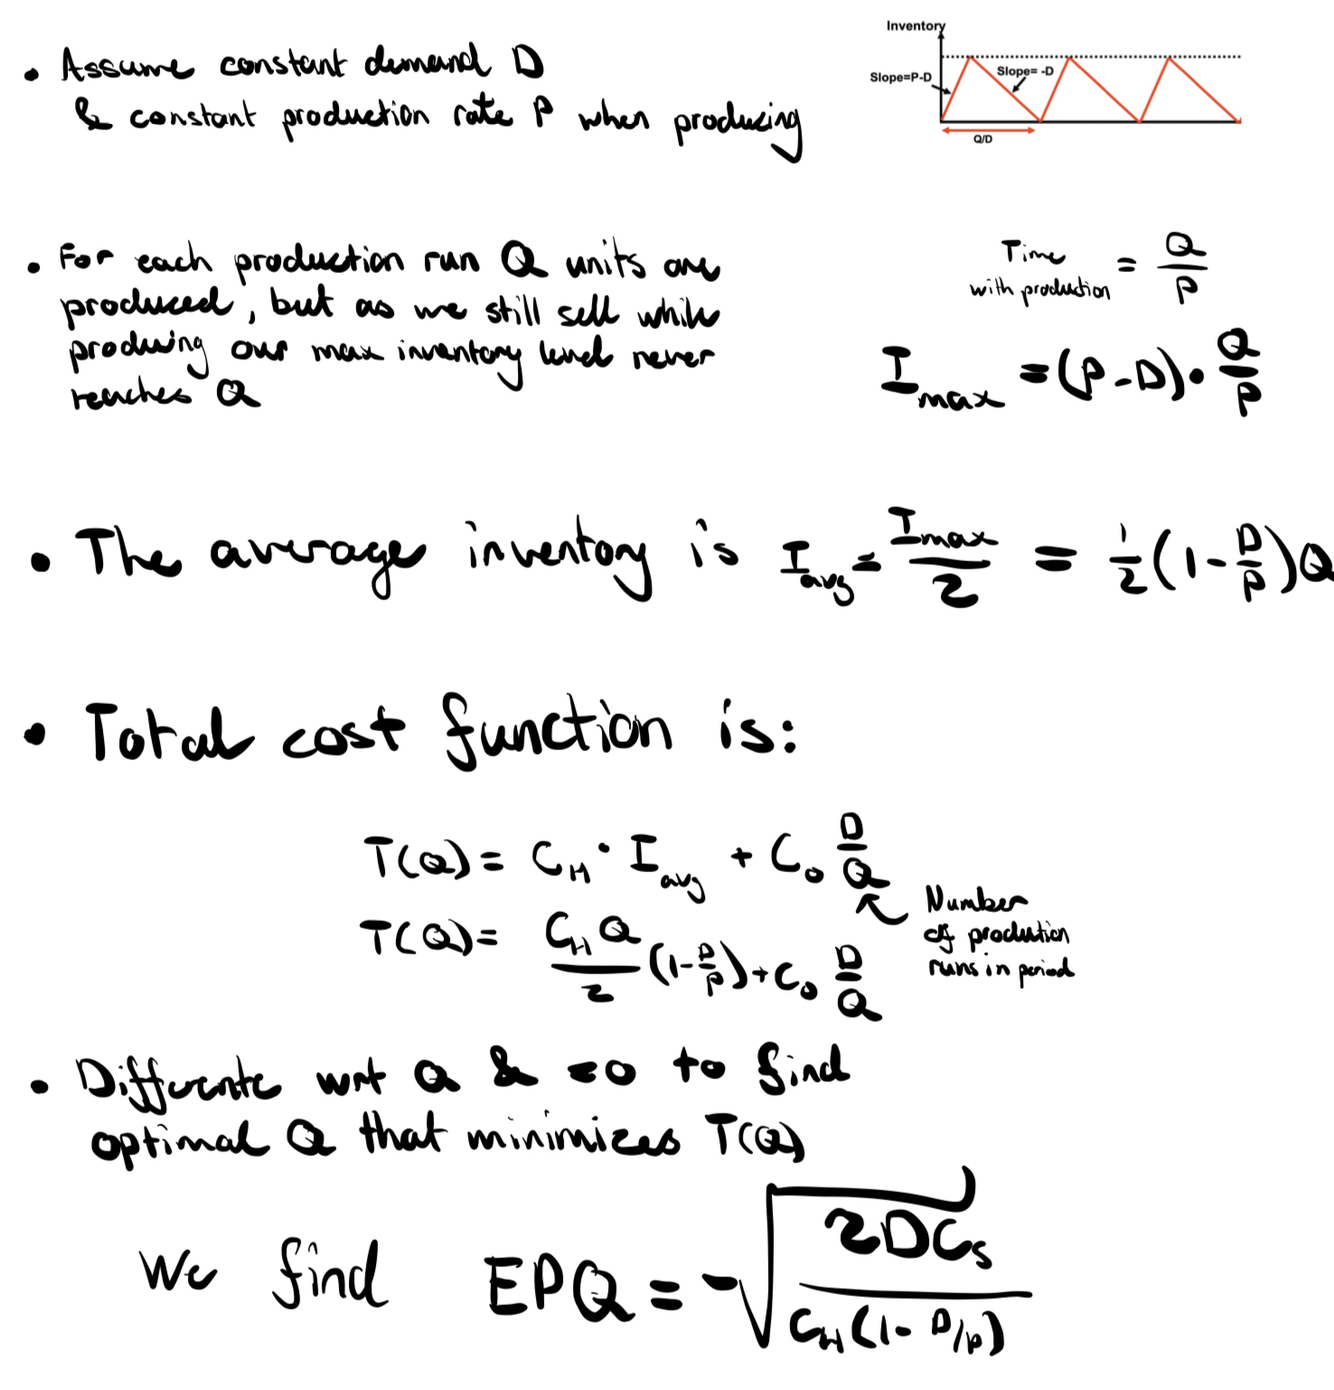 • Assume constant demand D
& constant production rate P when producing
Inventory
Slope=P-D
Slope= -D
Q/D
• For each production run Q units are
produced, but as we still sell while
producing our max inventory level never
reaches Q
Time with production = Q/P
I_max = (P-D)·Q/P
• The average inventory is I_avg = I_max/2 = 1/2(1-D/P)Q
• Total cost function is:
T(Q) = C_H · I_avg + C_o D/Q
Number
of production
runs in period
T(Q) = C_H Q/2 (1-D/P) + C_o D/Q
• Differente wrt Q & =0 to find
optimal Q that minimizes T(Q)
We find EPQ = √(2DC_s / C_H(1-D/P))